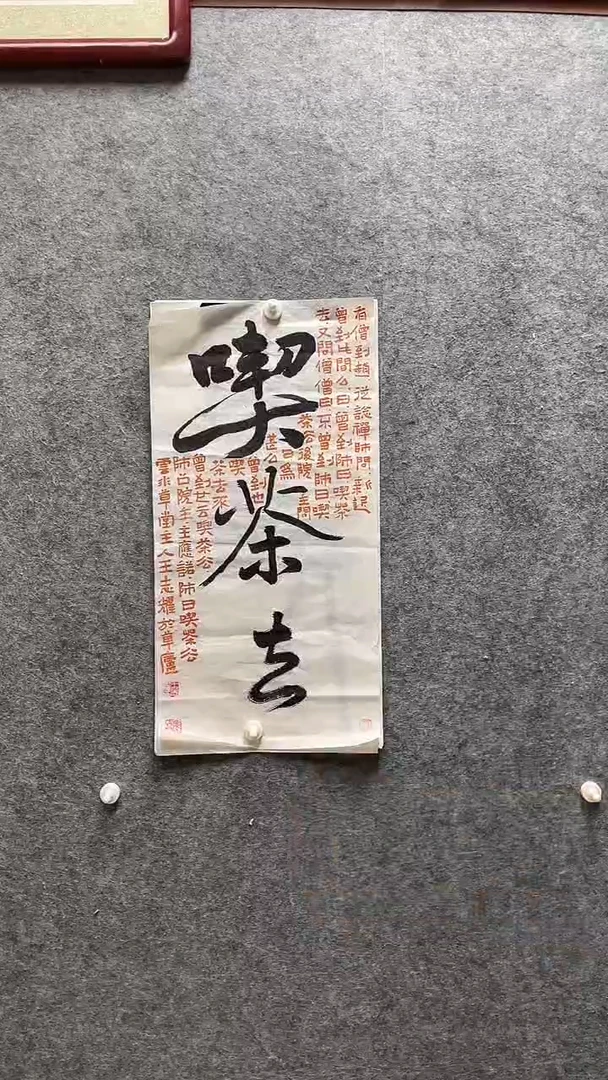 喫茶去
有僧到趙 從諗禪師問 新近
曾到此間么曰曾到師曰喫茶
去又問僧僧曰不曾到師曰喫
茶公後院主問
曰為
甚么
曾到也
喫
茶去不
曾到也云喫茶公
師召院主主應諾師曰喫茶公
雲水草堂主人王志耀於草廬